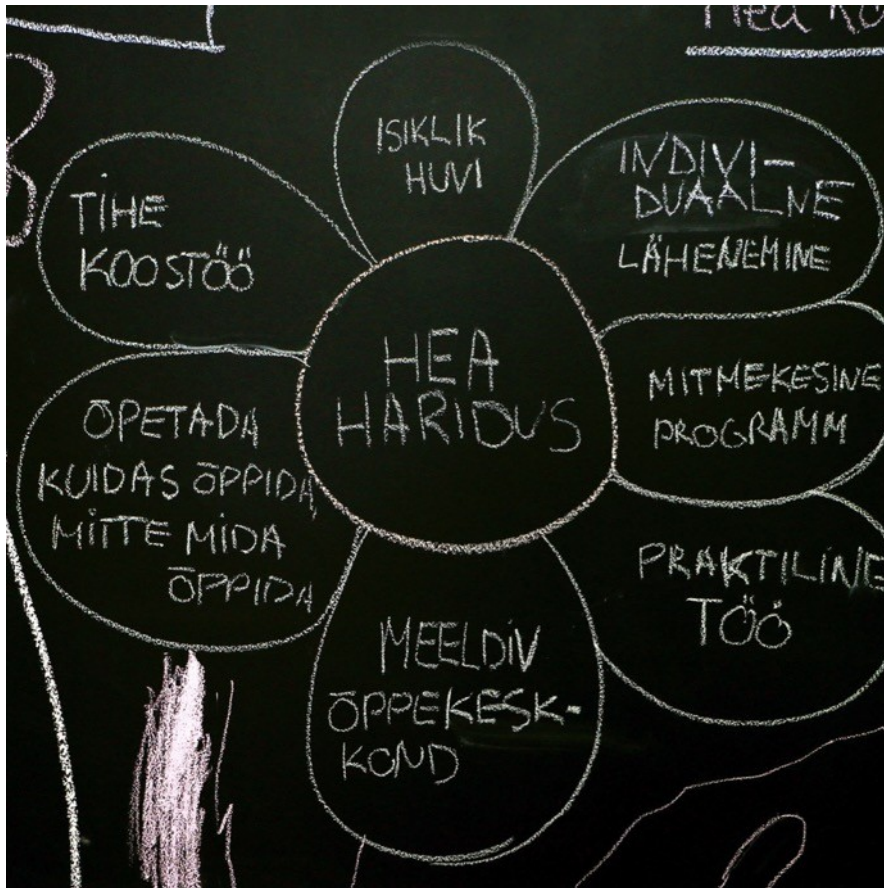 Hea
ISIKLIK
HUVI
INDIVI-
DUAALNE
LÄHENEMINE
TIHE
KOOSTÖÖ
HEA
HARIDUS
MITMEKESINE
PROGRAMM
ÕPETADA
KUIDAS ÕPPIDA,
MITTE MIDA
ÕPPIDA
PRAKTILINE
TÖÖ
MEELDIV
ÕPPEKESK-
KOND